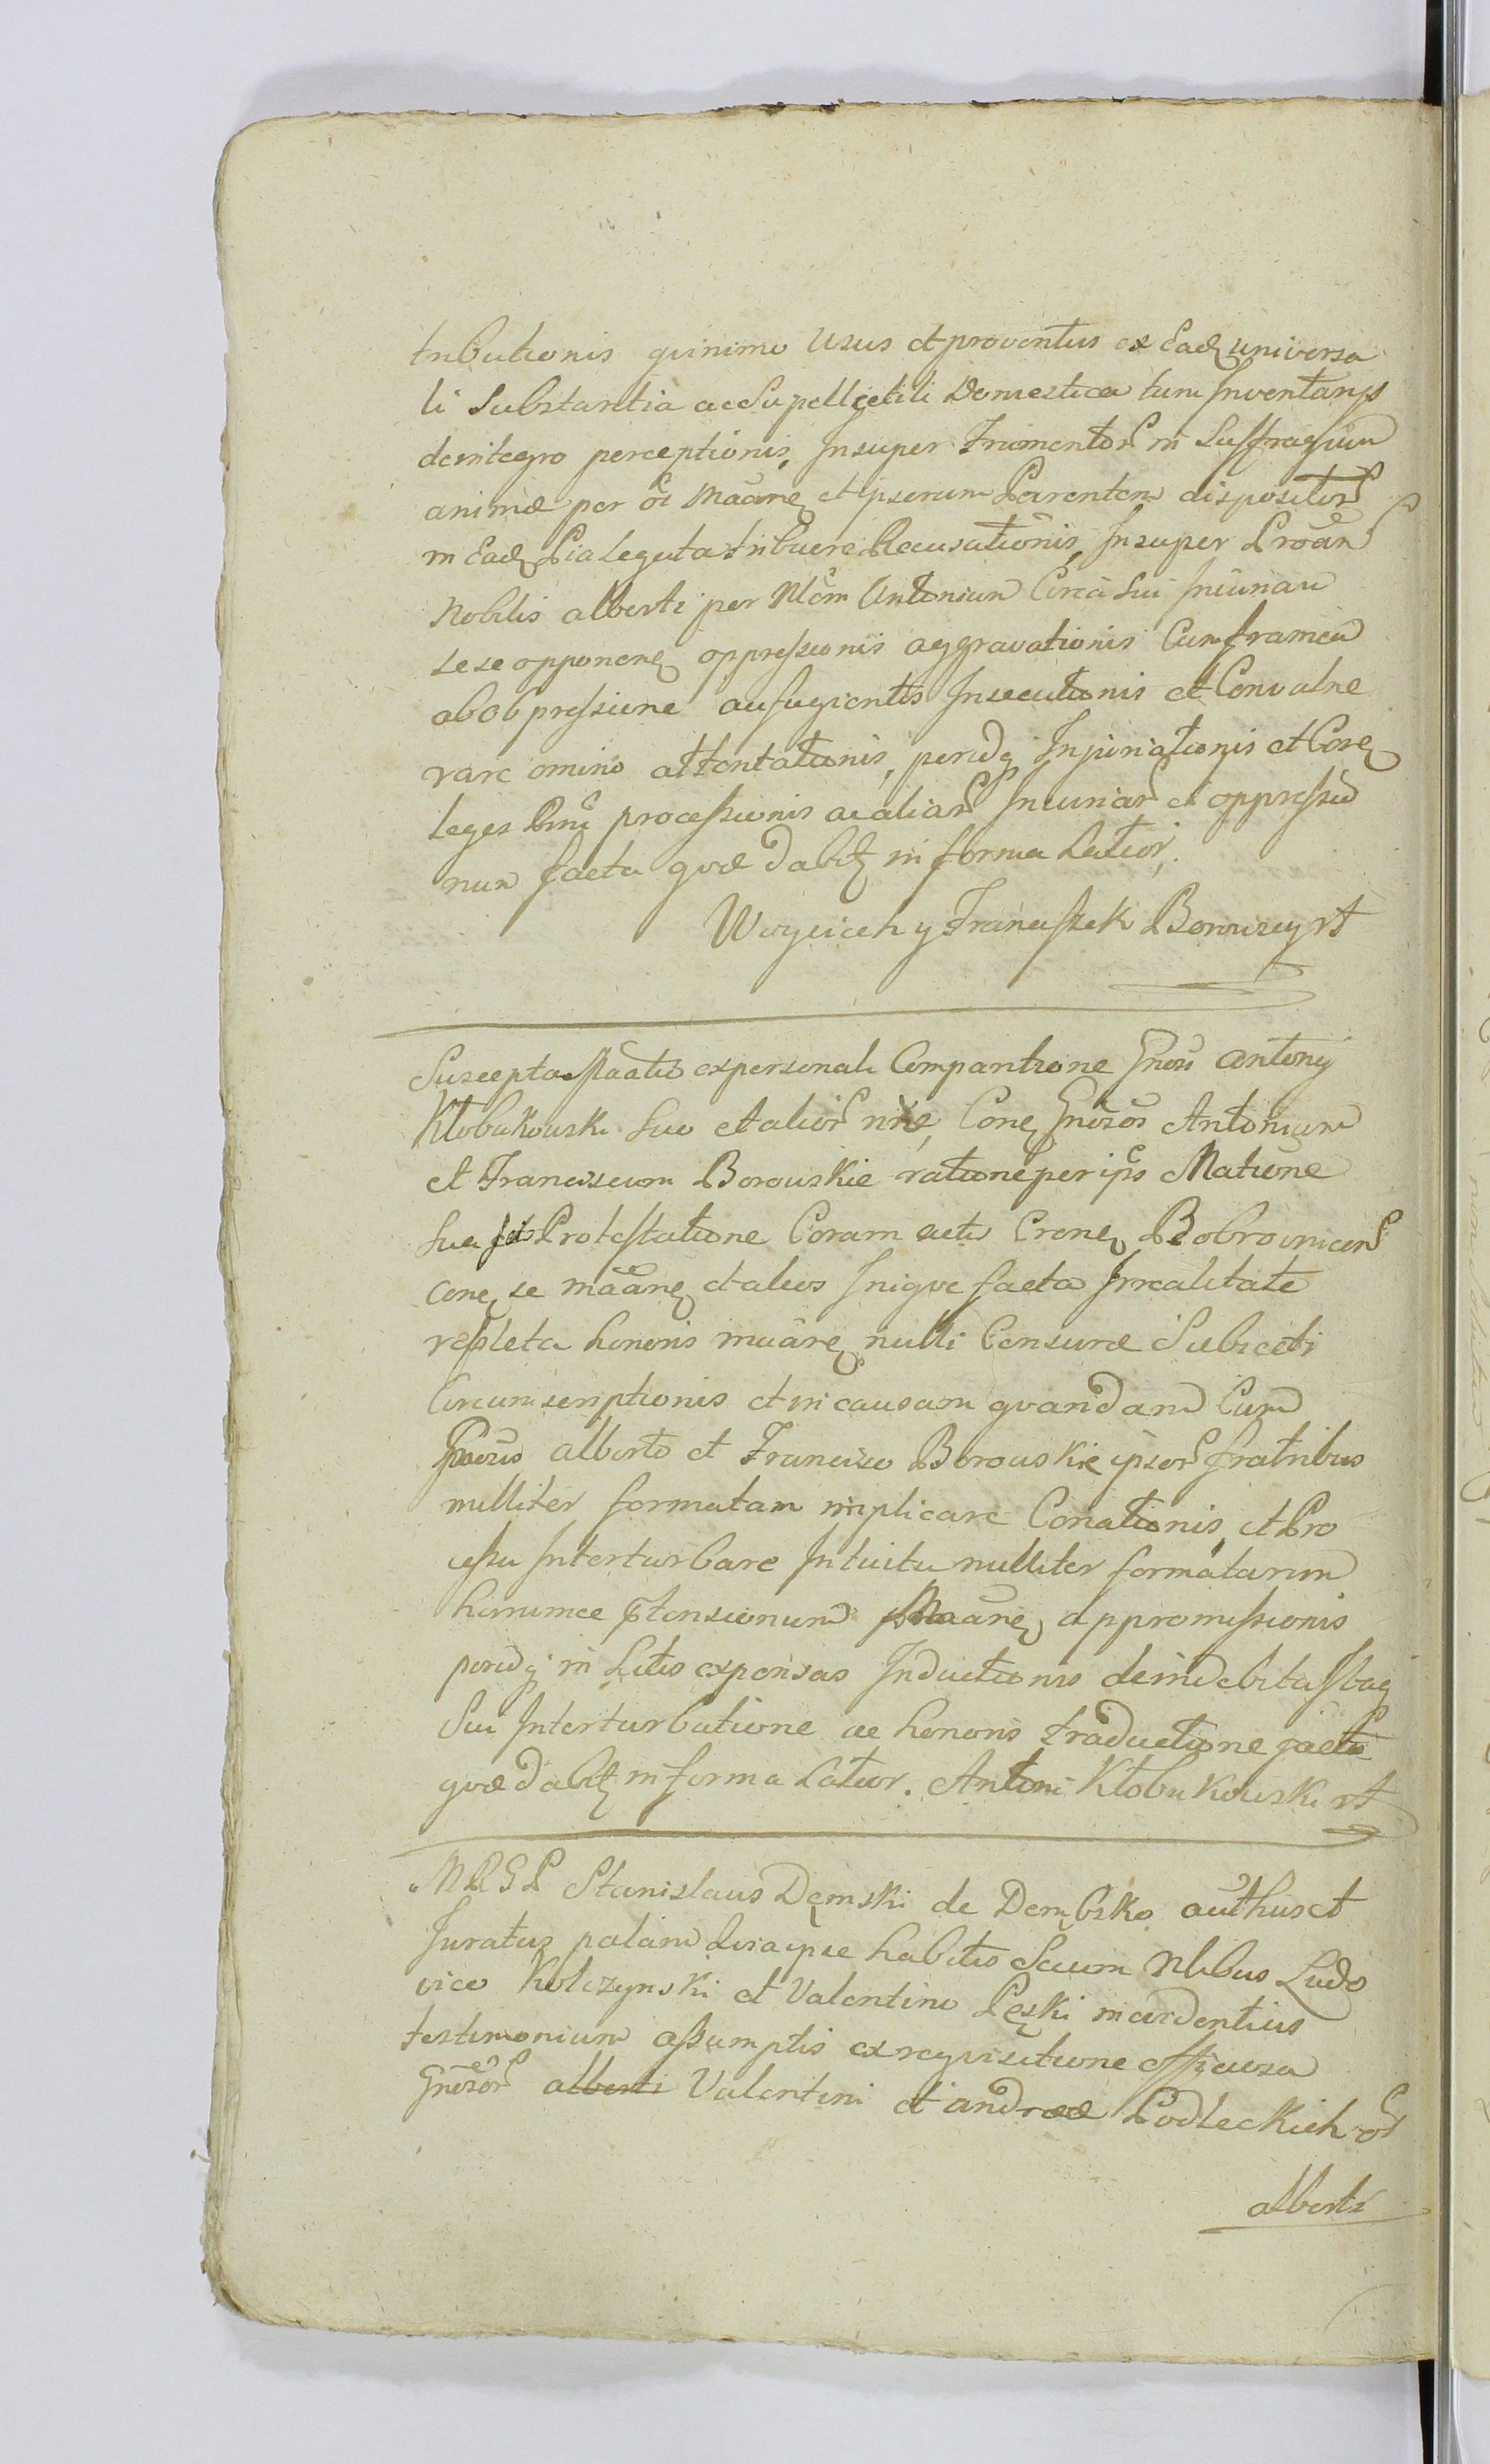 tributionis quinimo Usus et proventus ex Eadq universa
li Substantia ac Supellectili Domestica tum Inventarijs
deintegro perceptionis, Insuper Frumentor in Suffragium
animæ per oi Maane et ipsorum Parentem dispositor
in Eadq Pia Legata tribuere Recusationis, Insuper Proan
Nobilis alberti per Nlem Antonium Circa Sui Iniuriam
sese opponen oppressionis aggravationis Cum framea
ab obpressione aufugientis Insecutionis et Convulne
rare omino attentationis, peridq Injuriationis et Cone
leges processionis ac aliar Iniuriar et oppressio
num facta quæ dabit in forma Latior.
Woyciech y Franciszek Borowscy rt
Suscepta Maatio ex personali Comparitione Gnosi Antonij
Kłobukowski Suo et alior nne, Cone Gnosos Antonium
et Franciscum Borowskie ratione per ips Matione
Sua Protestatione Coram actis Crone Bobrownicen
cone se maane et alios Inique facta Irrealitate
repleta honoris maane nulli Censuræ Subiecti
Circumscriptionis et in causam quandam Cum
Gnosis alberto et Francisco Borowskie ipsor fratribus
nulliter formatam implicare Conationis, et Pro
cessu Interturbare Intuitu nulliter formatarum
harumce ptensionum Maane appromissionis
peridq in Litis expensas Inductionis de indebita Itaq
Sui Interturbatione ac honoris traductione facta
quæ dabit in forma Latior. Antoni Kłobukowski rt
MRGP Stanislaus Dęmski de Dembsko authus et
Juratus palam Liraqse habitis Secum Nlibus Ludo
vico Kolczynski et Valentino Pęski in evidentius
testimonium assumptis ex requisitione officiosa
Gnosor alberti Valentini et andreæ Podleckich
alberti